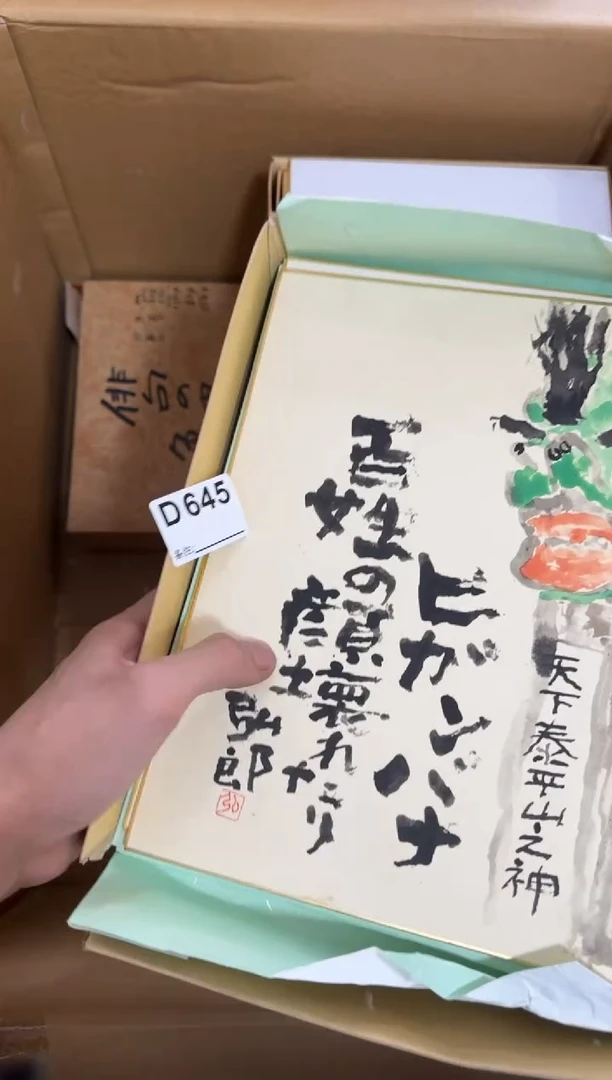 天下泰平山之神
ヒガンバナ
百姓の顔壊れたり
弘郎
D645
俳句の